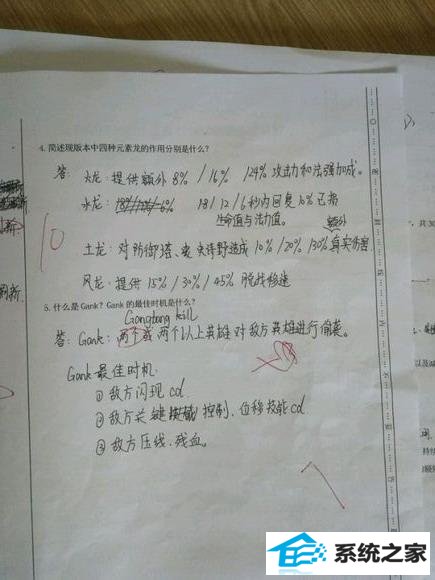 4. 简述现版本中四种元素龙的作用分别是什么？
答： 火龙：提供额外 8% / 16% / 24% 攻击力和法强加成。
水龙： 18 / 12 / 6 秒内回复 10% 已损
生命值与法力值。
额外
10
土龙：对防御塔、 史诗野怪造成 10% / 20% / 30% 真实伤害
风龙：提供 15% / 30% / 45% 脱战移速
5. 什么是Gank？Gank 的最佳时机是什么？
kill
答：Gank：两个或两个以上英雄对敌方英雄进行偷袭。
Gank 最佳时机
① 敌方闪现 cd
② 敌方关键 控制、位移技能cd
③ 敌方压线、残血。
系统之家